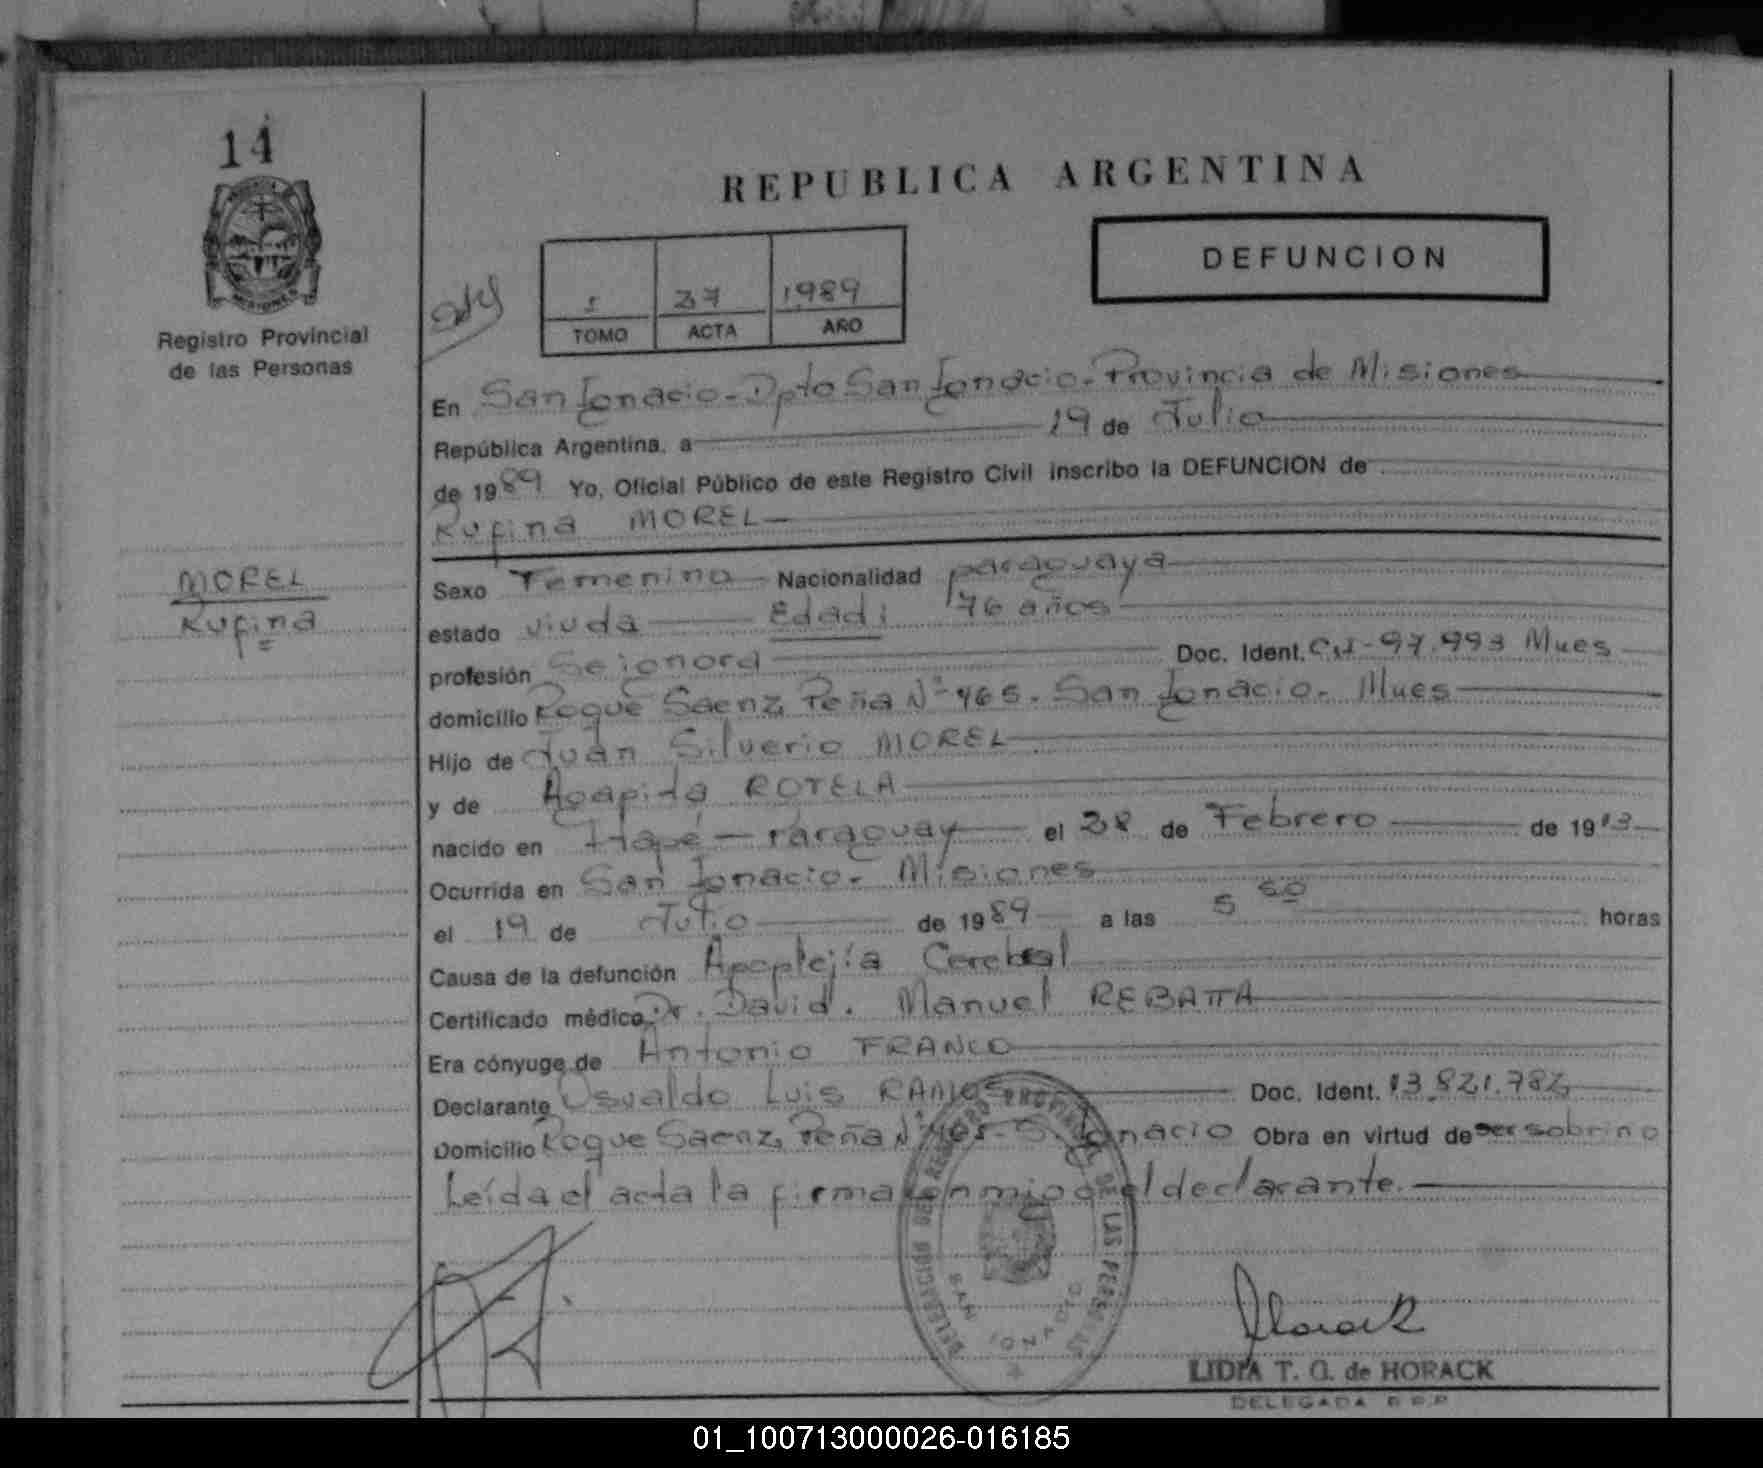 14
REPUBLICA ARGENTINA
DEFUNCION
1 37 1989
TOMO ACTA AÑO
Registro Provincial
de las Personas
En San Ignacio - Dpto San Ignacio - Provincia de Misiones
República Argentina, a 19 de Julio
de 1989 Yo, Oficial Público de este Registro Civil inscribo la DEFUNCION de
Rufina MOREL
MOREL
Rufina
Sexo Femenino Nacionalidad paraguaya
estado viuda Edad: 76 años
profesión Doc. Ident. 97.993 Mnes
domicilio Roque Saenz Peña Nº 465. San Ignacio. Mnes
Hijo de Juan Silverio MOREL
y de Agapida ROTELA
nacido en Itapé - Paraguay el 28 de Febrero de 1913
Ocurrida en San Ignacio. Misiones
el 19 de Julio de 1989 a las 5 horas
Causa de la defunción Apoplejía Cerebral
Certificado médico Dr. David. Manuel REBATTA
Era cónyuge de Antonio FRANCO
Declarante Osvaldo Luis RAMOS Doc. Ident. 13.821.782
Domicilio Roque Saenz Peña Nº 465 - S. Ignacio Obra en virtud de ser sobrino
Leída el acta la firma conmigo el declarante.
DELEGACION DEL REGISTRO PROVINCIAL DE LAS PERSONAS
SAN IGNACIO
LIDIA T. G. de HORACK
DELEGADA R.P.P.
01_100713000026-016185